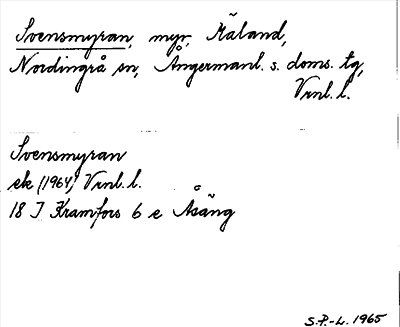 Svensmyran, myr, Häland,
Nordingrå sn, Ångermanl. s. doms. tg,
Vrnl. l.
Svensmyran
ek (1964) Vrnl. l.
18 I Kramfors 6 e Åsäng
S.P.-L. 1965